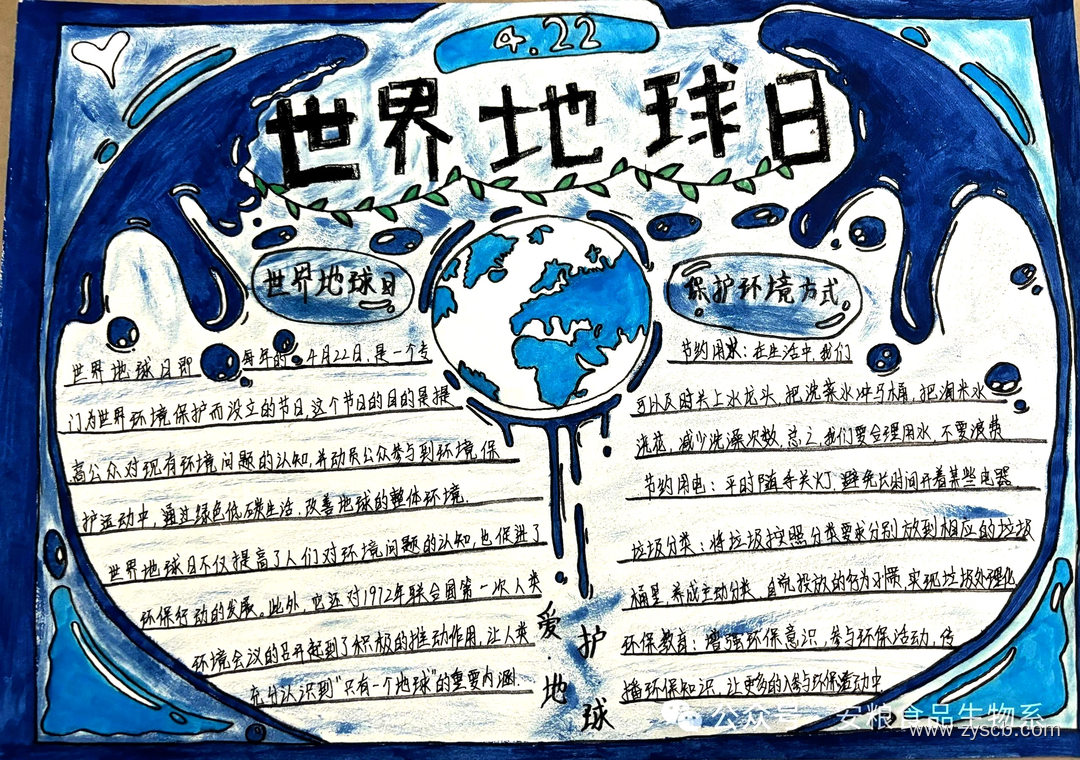 4.22
世界地球日
世界地球日
世界地球日即每年的4月22日,是一个专
门为世界环境保护而设立的节日,这个节日的目的是提
高公众对现有环境问题的认知,并动员公众参与到环境保
护运动中,通过绿色低碳生活,改善地球的整体环境.
世界地球日不仅提高了人们对环境问题的认知,也促进了
环保行动的发展。此外,它还对1972年联合国第一次人类
环境会议的召开起到了积极的推动作用,让人类
充分认识到"只有一个地球"的重要内涵
保护环境方式。
节约用水:在生活中,我们
可以及时关上水龙头,把洗菜水冲马桶,把淘米水
浇花,减少洗澡次数.总之,我们要合理用水,不要浪费
节约用电:平时随手关灯,避免长时间开着某些电器
垃圾分类:将垃圾按照分类要求分别放到相应的垃圾
桶里,养成主动分类、自觉投放的行为习惯,实现垃圾处理化
环保教育:增强环保意识,参与环保活动,传
播环保知识,让更多的人参与环保活动中
爱护地球
公众号·安粮食品生物系
www.zyscb.com